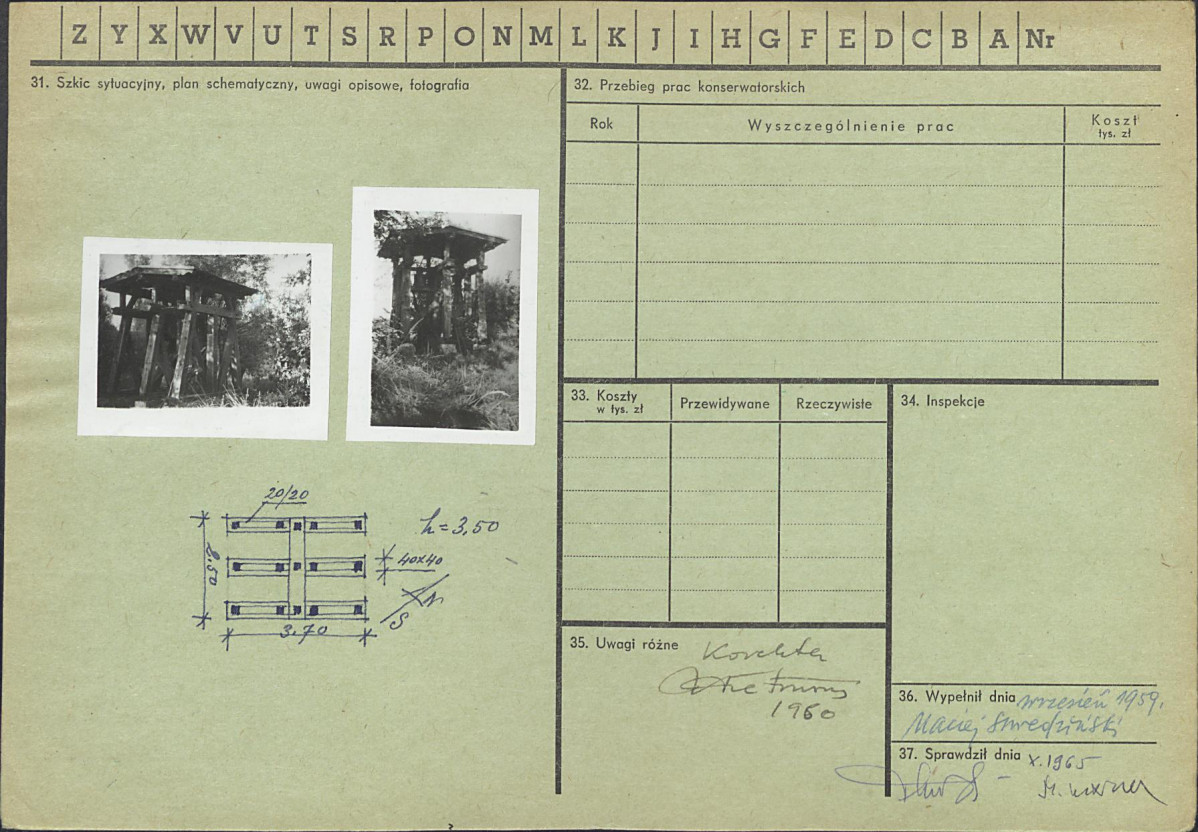 Z Y X W V U T S R P O N M L K J I H G F E D C B A Nr
31. Szkic sytuacyjny, plan schematyczny, uwagi opisowe, fotografia
20/20
h = 3,50
2.50
40x40
N
S
3.70
32. Przebieg prac konserwatorskich
Rok
Wyszczególnienie prac
Koszt
tys. zł
33. Koszty
w tys. zł
Przewidywane
Rzeczywiste
34. Inspekcje
35. Uwagi różne
Korekta
1960
36. Wypełnił dnia wrzesień 1959.
Maciej
37. Sprawdził dnia X.1965